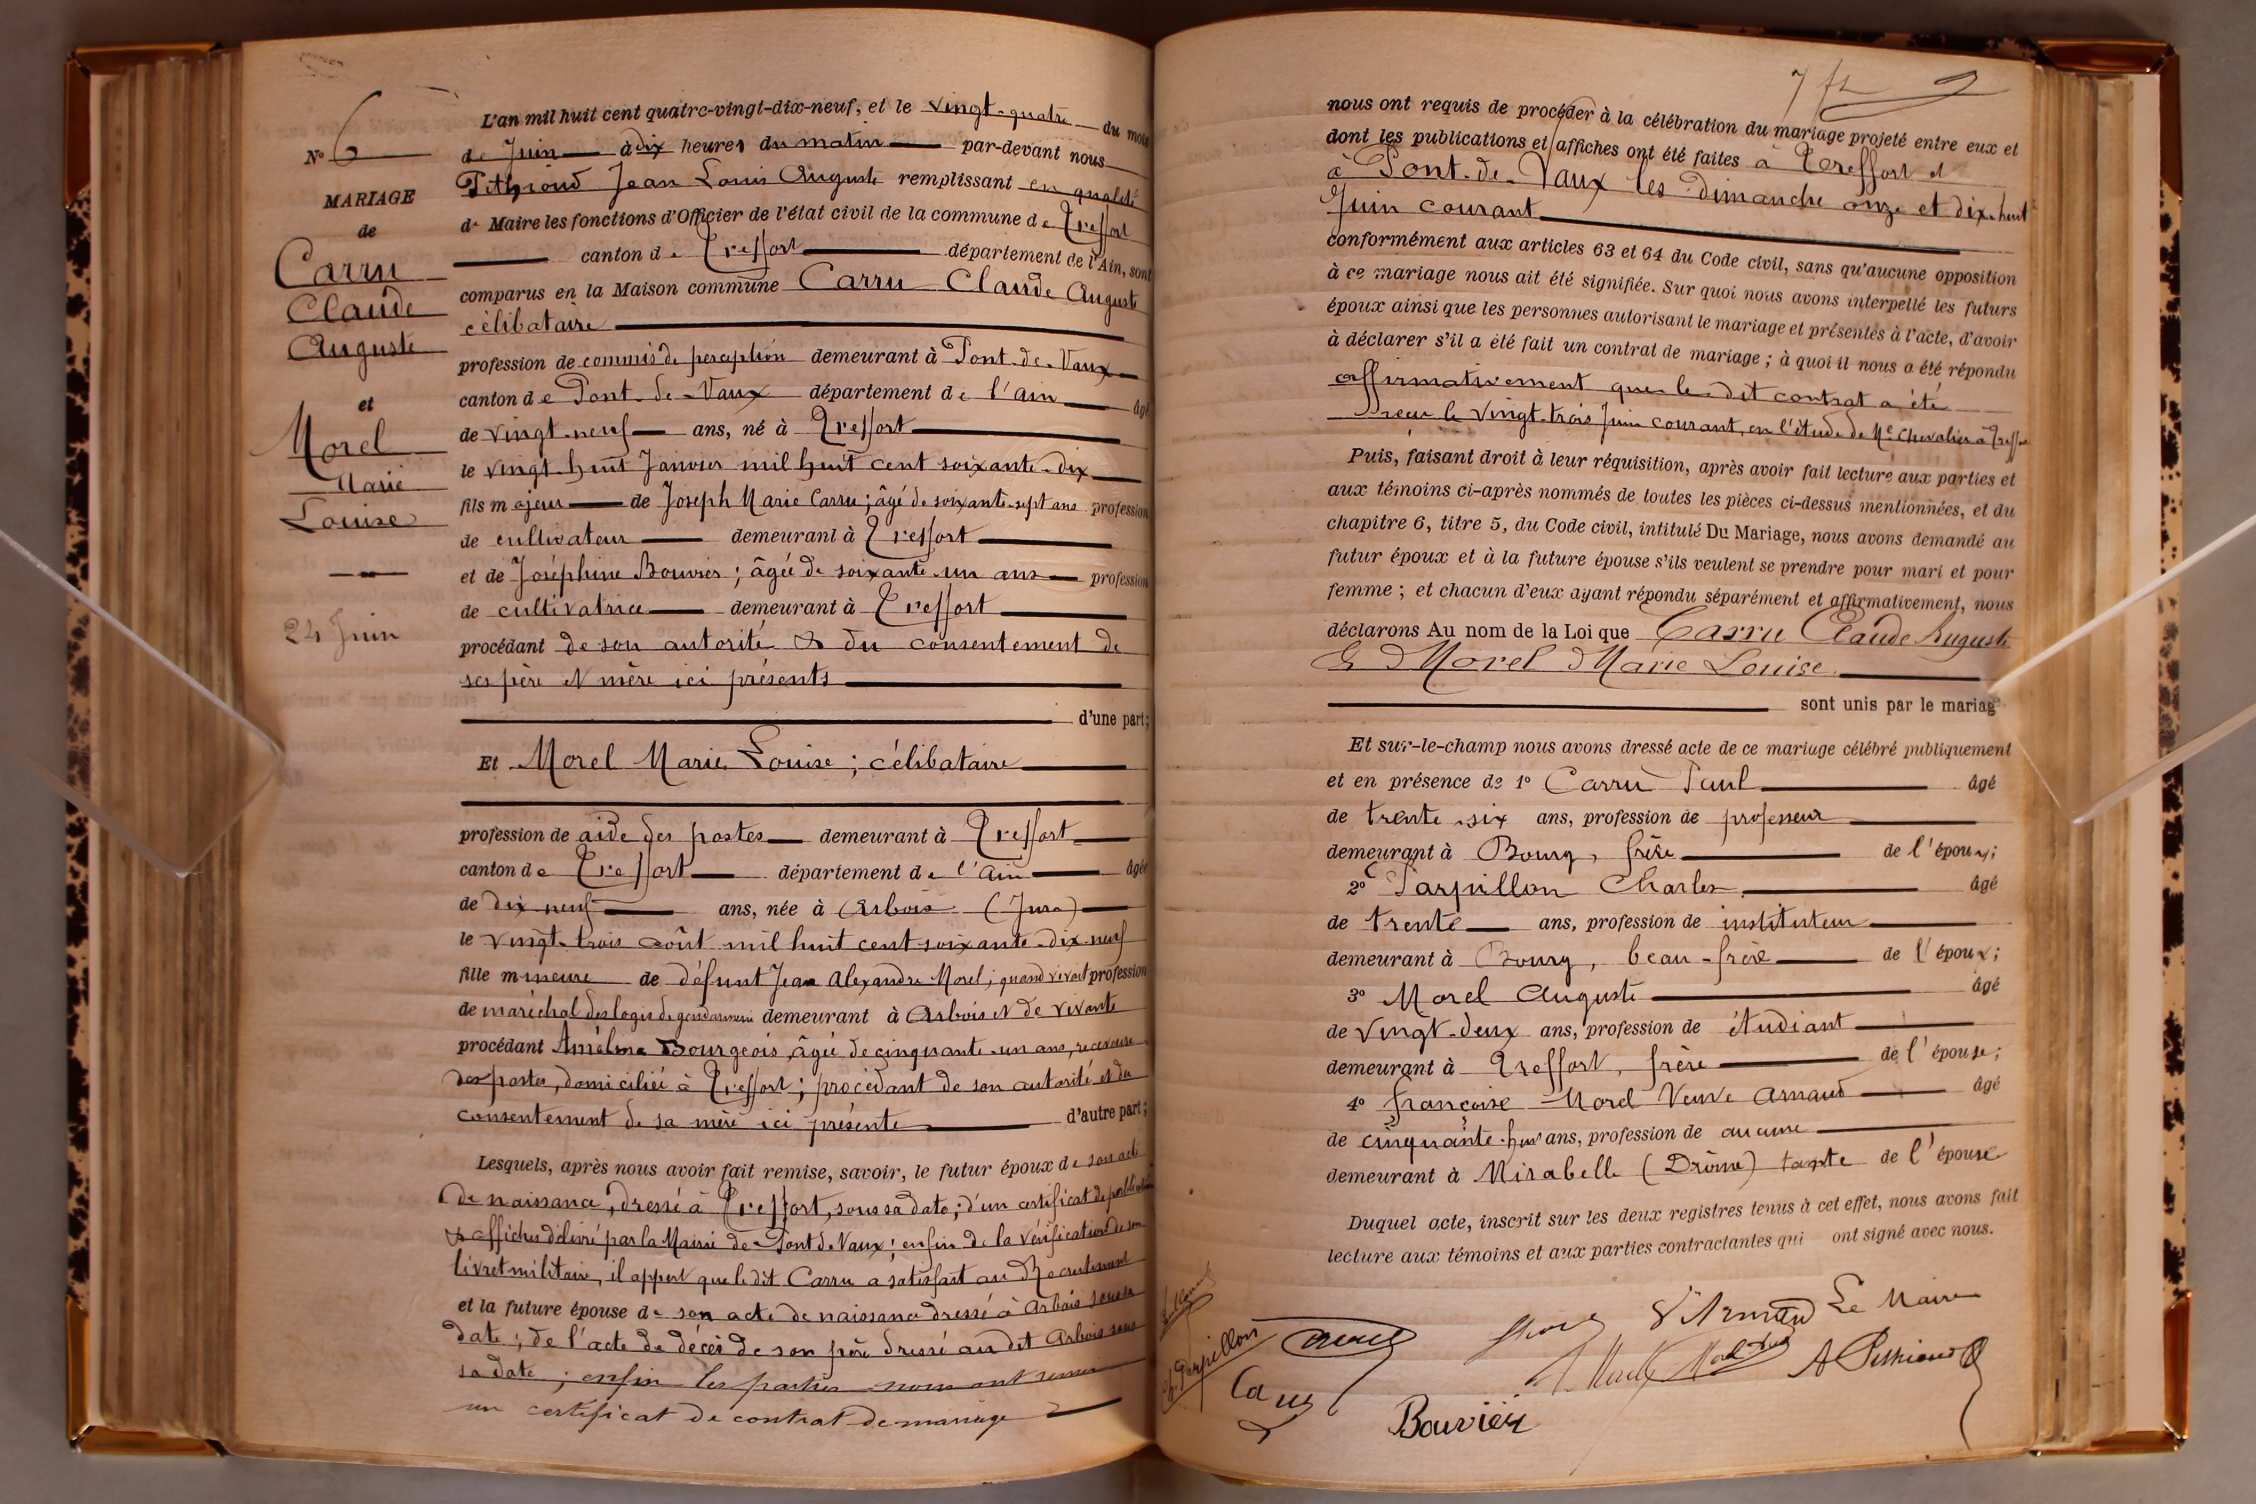 N° 6
MARIAGE
de
Carru
Claude
Auguste
et
Morel
Marie
Louise
24 Juin
L'an mil huit cent quatre-vingt-dix-neuf, et le vingt-quatre du mois
de Juin à dix heures du matin par-devant nous
Pethioud Jean Louis Auguste remplissant en qualité
de Maire les fonctions d'Officier de l'état civil de la commune de Treffort
canton de Treffort département de l'Ain, sont
comparus en la Maison commune Carru Claude Auguste
célibataire
profession de commis de perception demeurant à Pont-de-Vaux
canton de Pont-de-Vaux département de l'Ain âgé
de vingt-neuf ans, né à Treffort
le vingt-huit Janvier mil huit cent soixante-dix
fils majeur de Joseph Marie Carru ; âgé de soixante-sept ans profession
de cultivateur demeurant à Treffort
et de Joséphine Bouvier ; âgée de soixante-un ans profession
de cultivatrice demeurant à Treffort
procédant de son autorité & du consentement de
ses père et mère ici présents
d'une part ;
Et Morel Marie Louise ; célibataire
profession de aide des postes demeurant à Treffort
canton de Treffort département de l'Ain âgée
de dix neuf ans, née à Arbois (Jura)
le vingt-trois août mil huit cent soixante-dix-neuf
fille mineure de défunt Jean Alexandre Morel ; quand vivait profession
de maréchal des logis de gendarmerie demeurant à Arbois et de vivante
procédant Amélina Bourgeois, âgée de cinquante-un ans, receveuse
des postes, domiciliée à Treffort ; procédant de son autorité et du
consentement de sa mère ici présente d'autre part ;
Lesquels, après nous avoir fait remise, savoir, le futur époux de son acte
de naissance, dressé à Treffort, sous sa date ; d'un certificat de publication
& affiches délivré par la Mairie de Pont de Vaux ; enfin de la vérification de son
livret militaire, il appert que le dit Carru a satisfait au Recrutement
et la future épouse de son acte de naissance dressé à Arbois sous sa
date ; de l'acte de décès de son père dressé au dit Arbois sous
sa date ; enfin les parties nous ont remis
un certificat de contrat de mariage
nous ont requis de procéder à la célébration du mariage projeté entre eux et
dont les publications et affiches ont été faites à Treffort et
à Pont-de-Vaux les dimanche onze et dix-huit
Juin courant
conformément aux articles 63 et 64 du Code civil, sans qu'aucune opposition
à ce mariage nous ait été signifiée. Sur quoi nous avons interpellé les futurs
époux ainsi que les personnes autorisant le mariage et présentes à l'acte, d'avoir
à déclarer s'il a été fait un contrat de mariage ; à quoi il nous a été répondu
affirmativement que le dit contrat a été
reçu le vingt-trois Juin courant, en l'étude de Me Chevalier à Treffort
Puis, faisant droit à leur réquisition, après avoir fait lecture aux parties et
aux témoins ci-après nommés de toutes les pièces ci-dessus mentionnées, et du
chapitre 6, titre 5, du Code civil, intitulé Du Mariage, nous avons demandé au
futur époux et à la future épouse s'ils veulent se prendre pour mari et pour
femme ; et chacun d'eux ayant répondu séparément et affirmativement, nous
déclarons Au nom de la Loi que Carru Claude Auguste
& Morel Marie Louise
sont unis par le mariage
Et sur-le-champ nous avons dressé acte de ce mariage célébré publiquement
et en présence de 1° Carru Paul âgé
de trente-six ans, profession de professeur
demeurant à Bourg, frère de l'époux ;
2° Parpillon Charles âgé
de trente ans, profession de instituteur
demeurant à Bourg, beau-frère de l'époux ;
3° Morel Auguste âgé
de vingt-deux ans, profession de étudiant
demeurant à Treffort, frère de l'épouse ;
4° Françoise Morel Veuve Arnaud âgé
de cinquante-huit ans, profession de aucune
demeurant à Mirabelle (Drôme) tante de l'épouse
Duquel acte, inscrit sur les deux registres tenus à cet effet, nous avons fait
lecture aux témoins et aux parties contractantes qui ont signé avec nous.
Vve Arnaud Le Maire
Ch. Parpillon
Carru
Bouvier